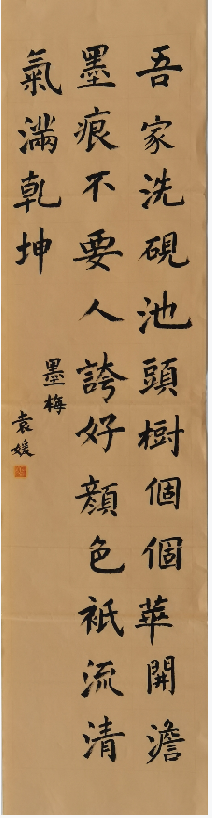 吾家洗硯池頭樹個個華開澹
墨痕不要人誇好顏色袛流清
氣滿乾坤
墨梅
袁媛